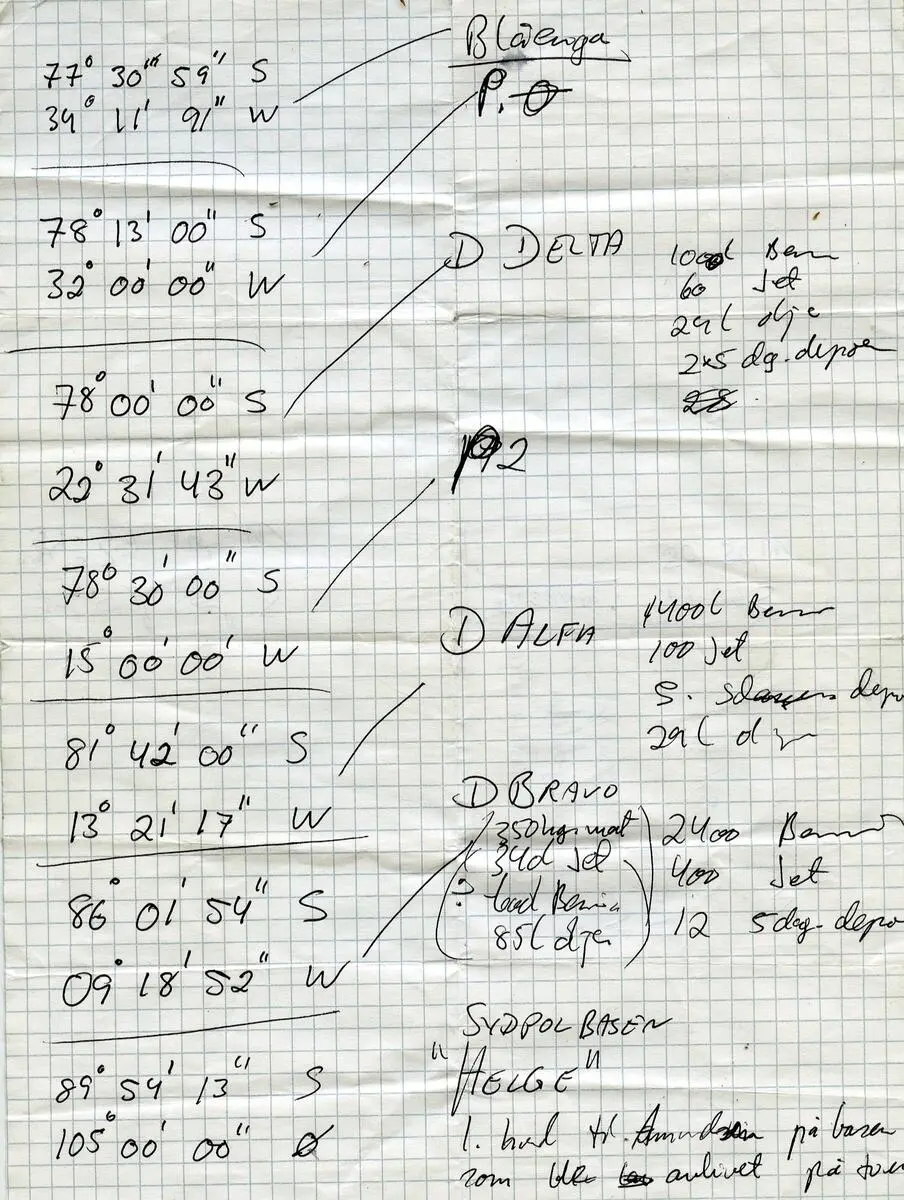 Blåenga
77° 30''' 59'' S
34° 11' 91'' W
P.
78° 13' 00'' S
32° 00' 00'' W
D DELTA
1000l Ben
60 Jet
29l olje
2x5 dg. depoer
78° 00' 00'' S
22° 31' 43'' W
P 2
78° 30' 00'' S
15° 00' 00' W
D ALFA
4400l Ben
100 Jet
5. depo
29l
81° 42' 00'' S
13° 21' 17'' W
D BRAVO
350kg mat
340l Jet
600l Bensin
85l olje
2400 Bensin
400 Jet
12 5dag. depo
86° 01' 54'' S
09° 18' 52'' W
SYDPOLBASEN
"HELGE"
89° 59' 13'' S
105° 00' 00'' Ø
1. hund til Amundsen på basen
som ble avlivet på